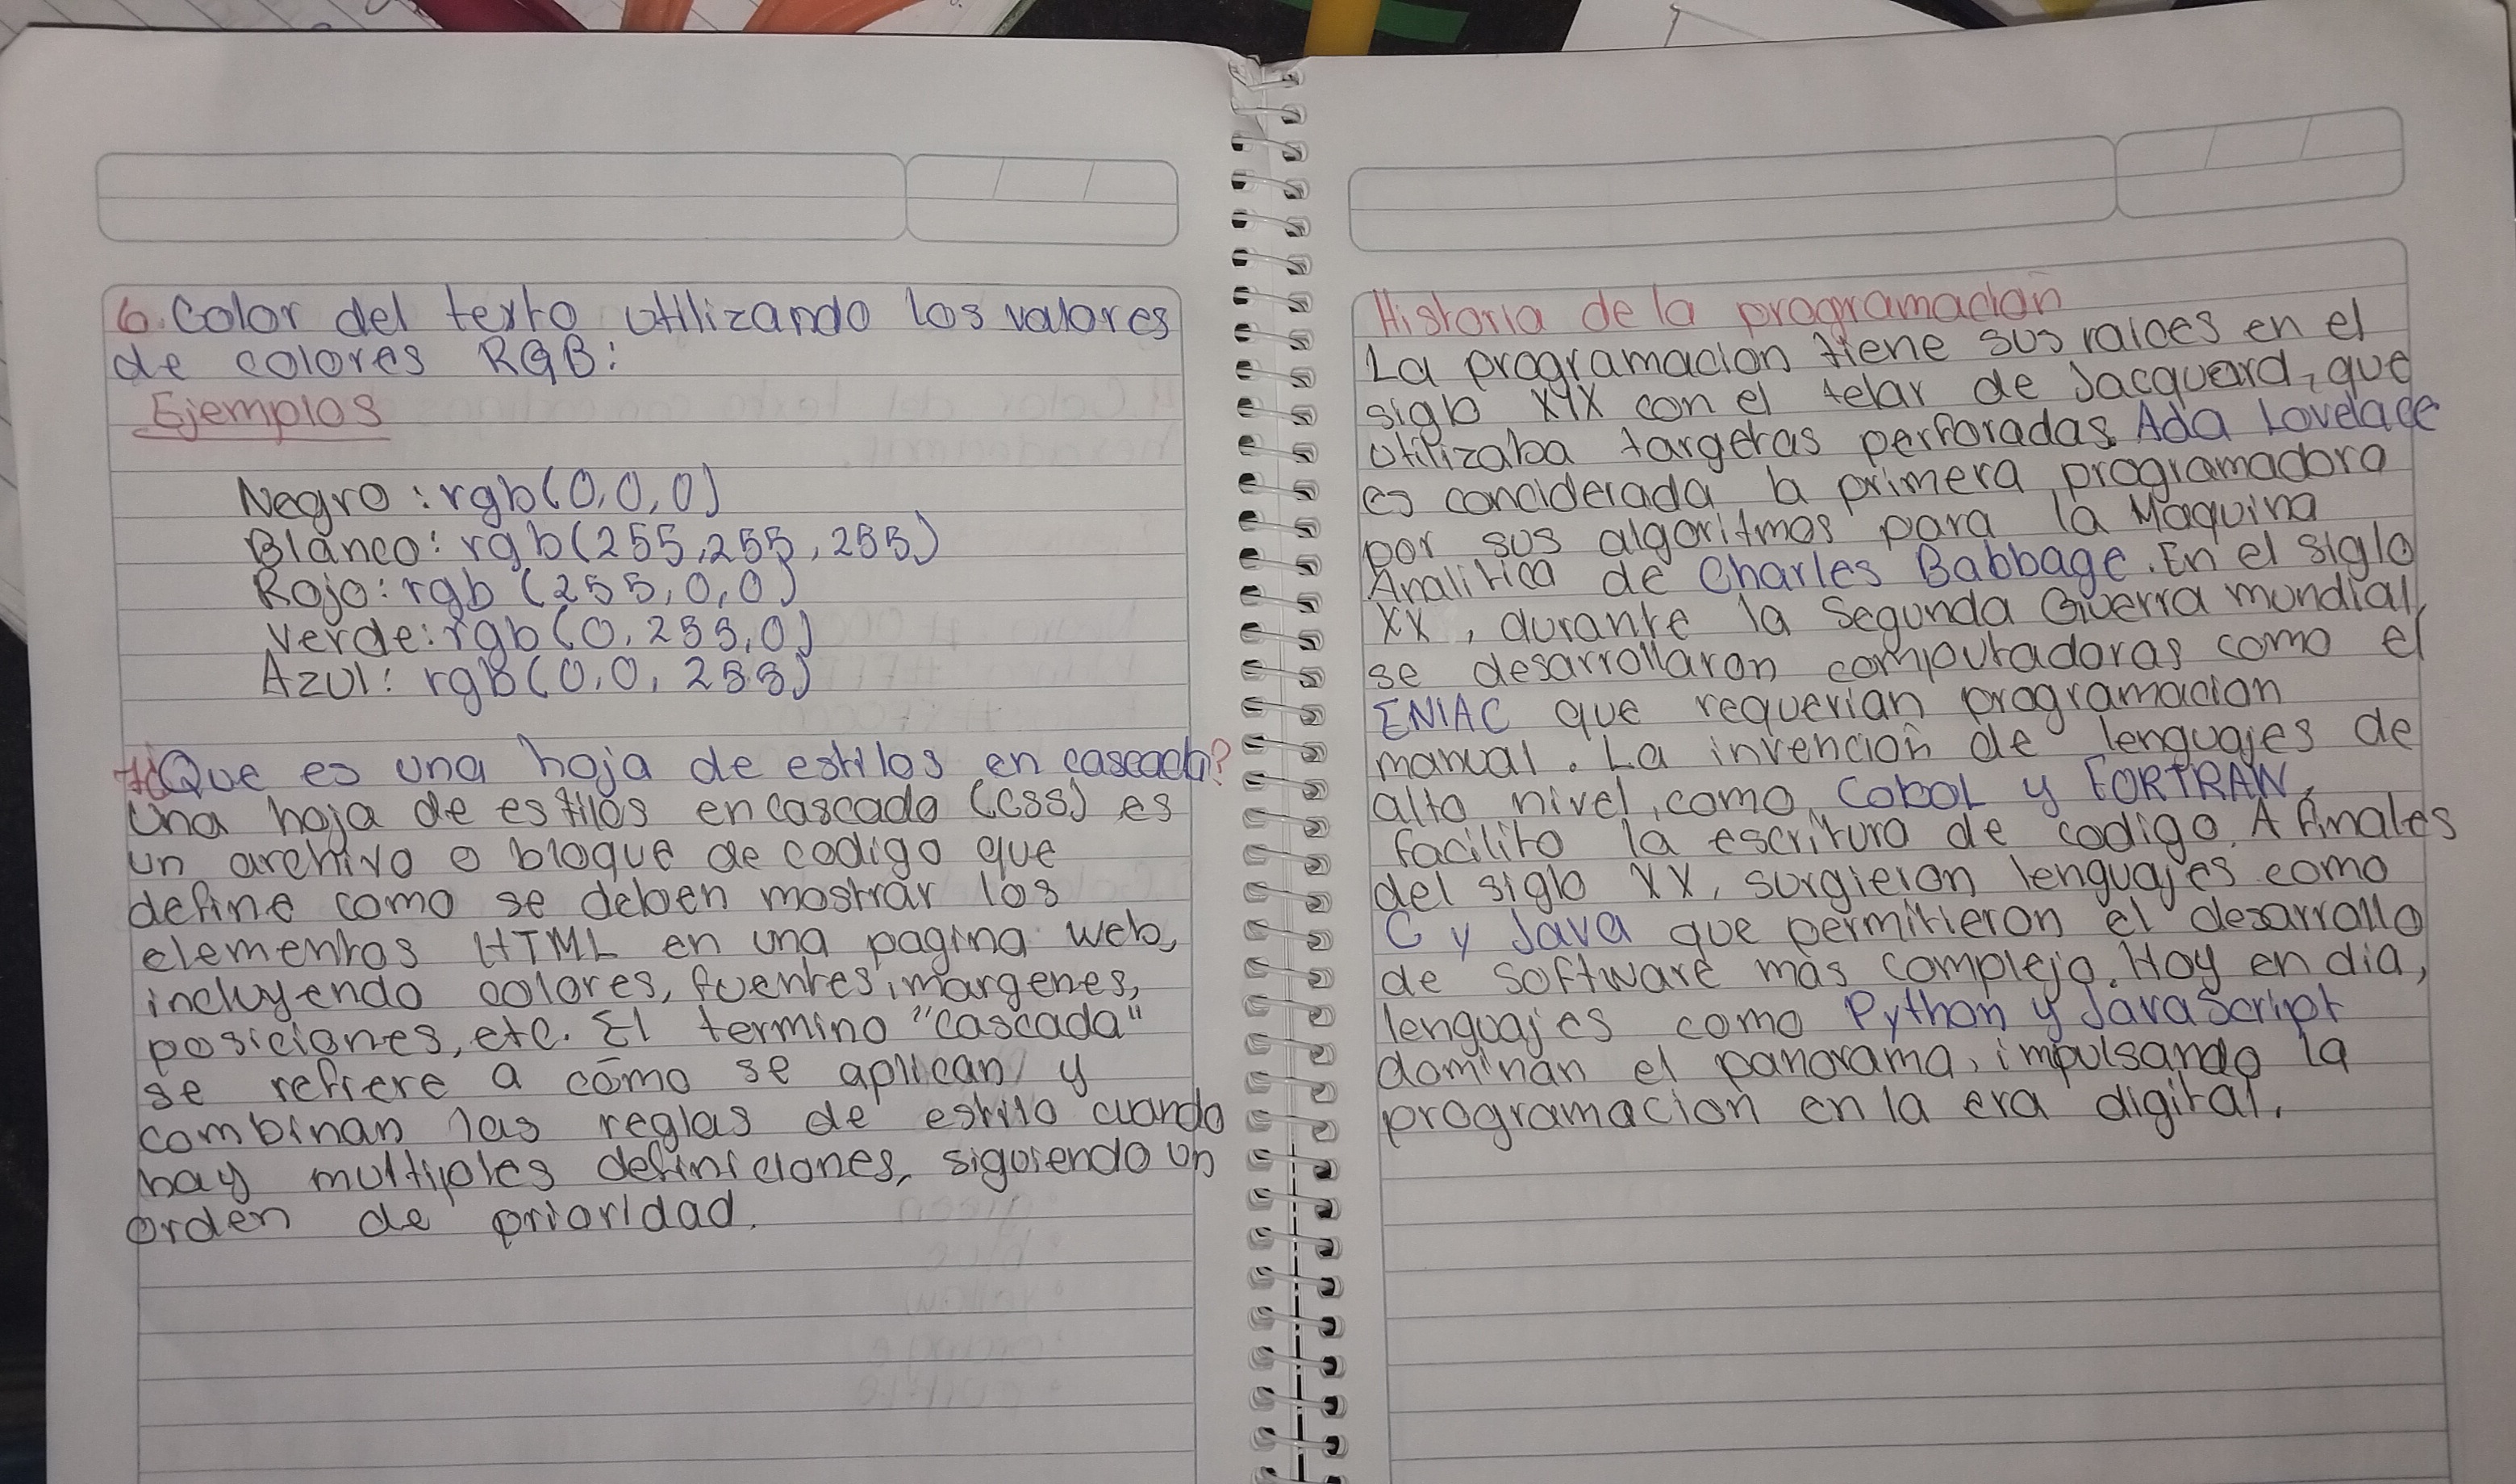 6. Color del texto utilizando los valores
de colores RGB:
Ejemplos
Negro: rgb(0,0,0)
Blanco: rgb(255,255,255)
Rojo: rgb (255,0,0)
Verde: rgb(0,255,0)
Azul: rgb(0,0,255)
7¿Que es una hoja de estilos en cascada?
Una hoja de estilos en cascada (CSS) es
un archivo o bloque de codigo que
define como se deben mostrar los
elementos HTML en una pagina web,
incluyendo colores, fuentes, margenes,
posiciones, etc. El termino "cascada"
se refiere a cómo se aplican y
combinan las reglas de estilo cuando
hay multiples definiciones, siguiendo un
orden de prioridad.
Historia de la programación
La programacion tiene sus raices en el
siglo XIX con el telar de Jacqueard, que
utilizaba targetas perforadas. Ada Lovelace
es conciderada la primera programadora
por sus algoritmos para la Maquina
Analitica de Charles Babbage. En el siglo
XX, durante la Segunda Guerra mundial,
se desarrollaron computadoras como el
ENIAC que requerian programacion
manual. La invención de lenguajes de
alto nivel, como, Cobol y FORTRAN,
facilito la escritura de codigo. A finales
del siglo XX, surgieron lenguajes como
C y Java que permitieron el desarrollo
de software màs complejo. Hoy en dia,
lenguajes como Python y JavaScript
dominan el panorama, impulsando la
programacion en la era digital.